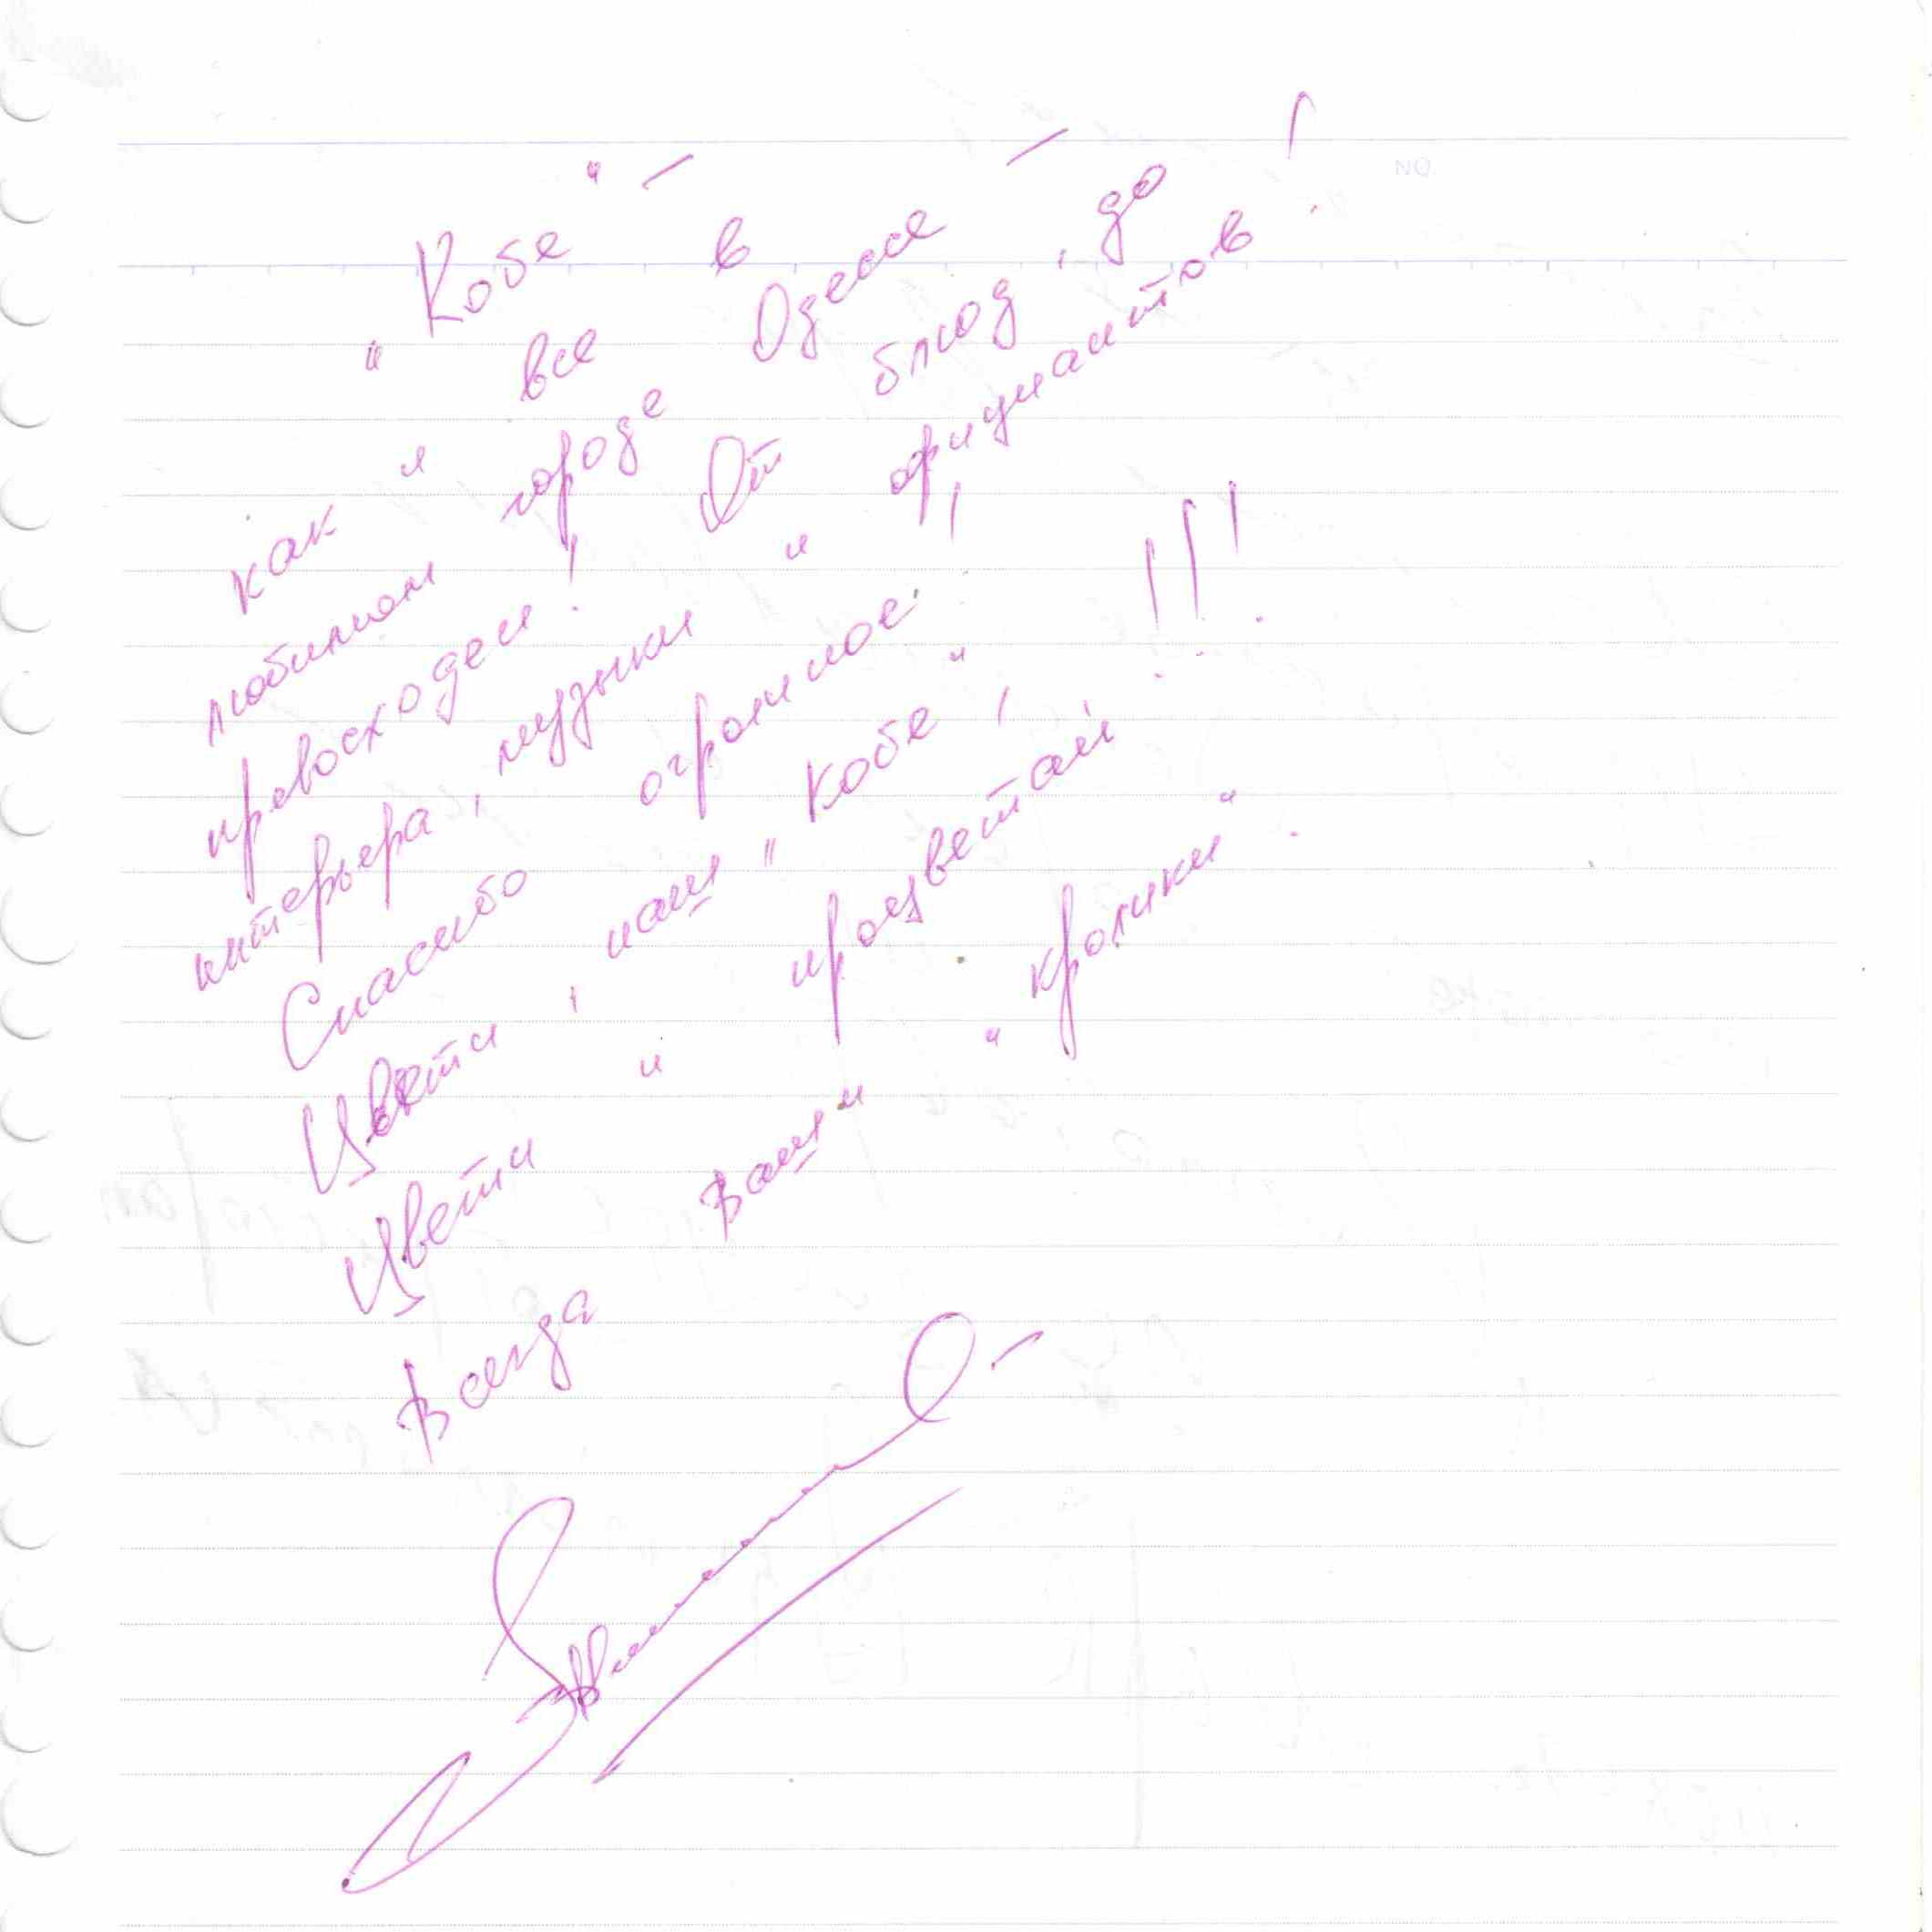 "Кобе" –
как и все в
любимом городе Одессе –
превосходен! От блюд, до
интерьера, музыки и официантов!
Спасибо огромное!
Цвети, наш "Кобе",
Цвети и процветай!!!
Всегда Ваши "кролики".